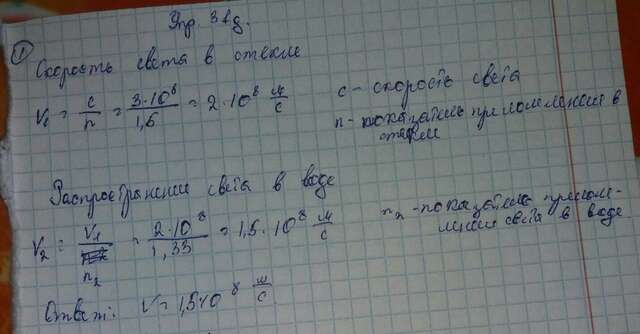 Упр. 31д.
① Скорость света в стекле
V₁ = c/n = 3·10⁸/1,5 = 2·10⁸ м/с
c - скорость света
n - показатель преломления в
стекле
Распространение света в воде
V₂ = V₁/n₂ = 2·10⁸/1,33 = 1,5·10⁸ м/с
n₂ - показатель прелом-
ления света в воде
Ответ: V = 1,5·10⁸ м/с